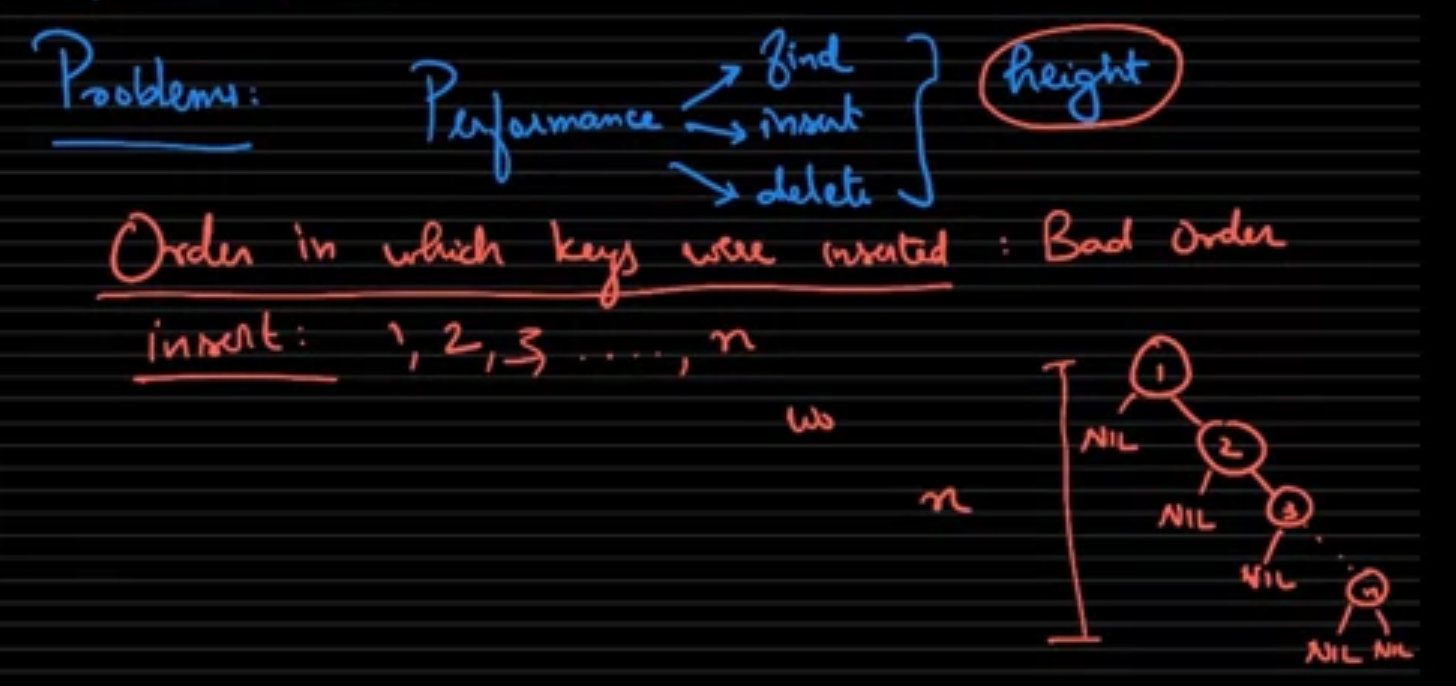 Problems: Performance → find
→ insert
→ delete
height
Order in which keys were inserted : Bad Order
insert: 1, 2, 3, ...., n
wo
n
1
NIL 2
NIL 3
NIL n
NIL NIL